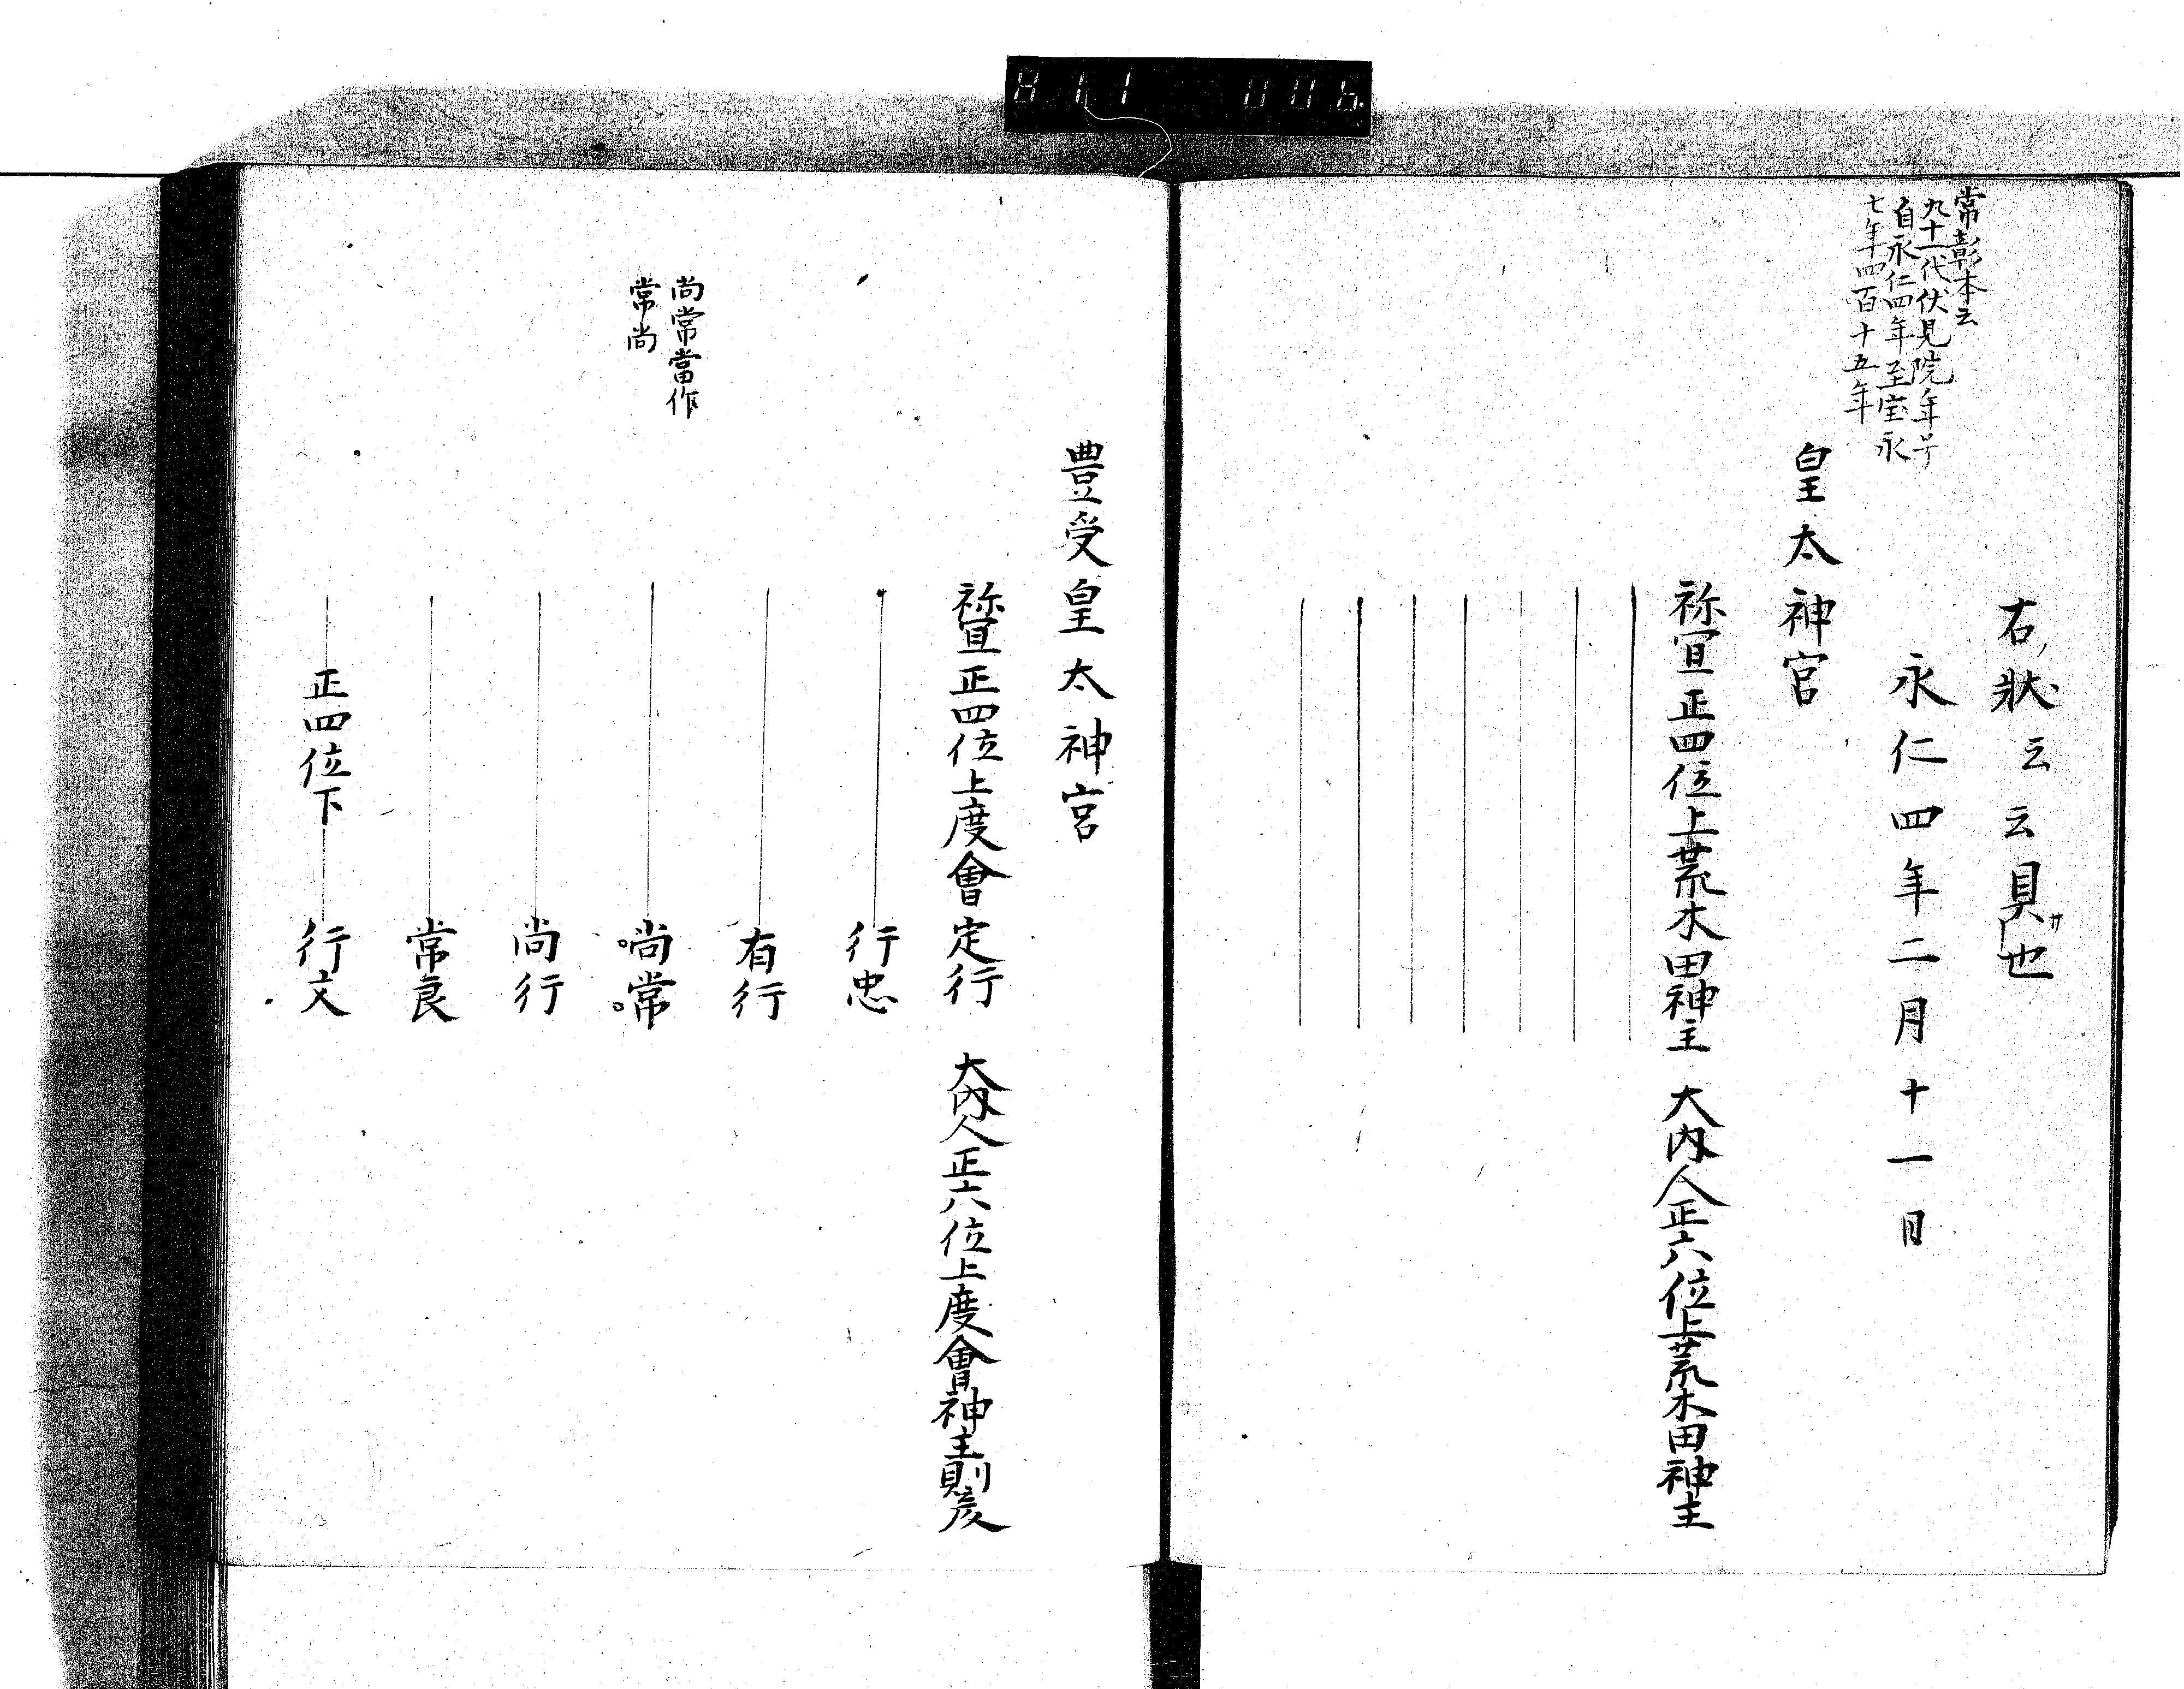 811 006.
常彰本云
九十一代伏見院年号
自永仁四年至宝永
七年四百十五年
右状云云具也
永仁四年二月十一日
皇太神宮
祢宜正四位上荒木田神主 大内人正六位上荒木田神主
豊受皇太神宮
祢宜正四位上度會定行 大内人正六位上度會神主則彦
行忠
有行
尚常當作
常尚
尚常
尚行
常良
正四位下 行文